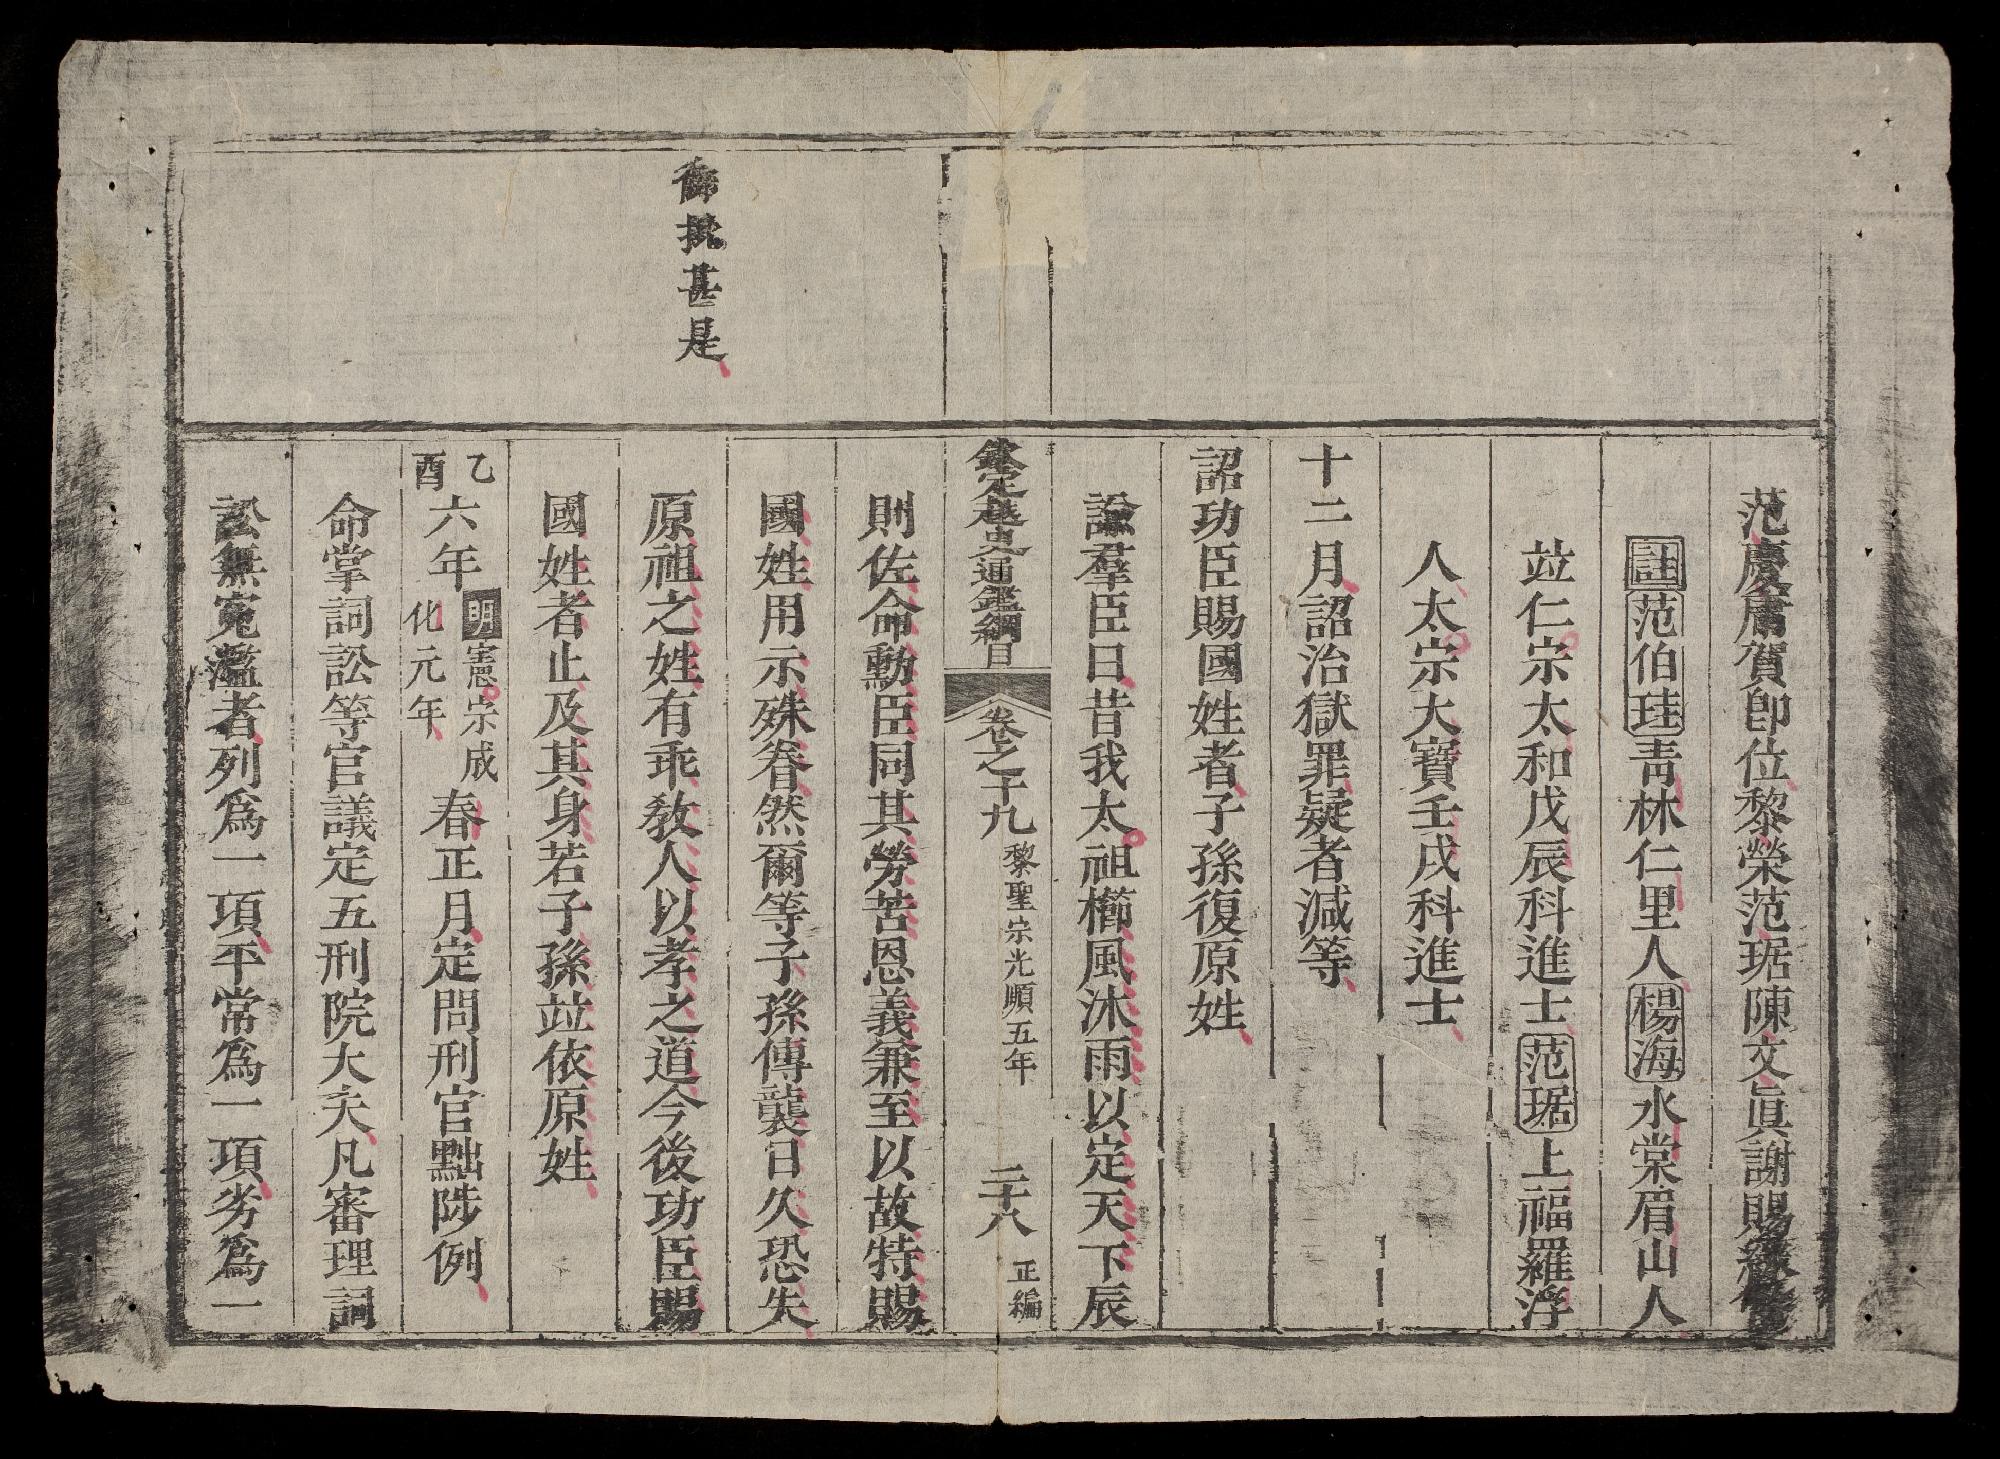 范慶庸賀卽位黎榮范琚陳文眞謝賜綵幣
註范伯珪靑林仁里人楊海水棠眉山人
竝仁宗太和戊辰科進士范琚上福羅浮
人太宗大寶壬戌科進士
十二月詔治獄罪疑者減等
詔功臣賜國姓者子孫復原姓
諭羣臣曰昔我太祖櫛風沐雨以定天下辰
欽定越史通鑑綱目 卷之十九 黎聖宗光順五年 二十八 正編
則佐命勳臣同其勞苦恩義兼至以故特賜
國姓用示殊眷然爾等子孫傳襲日久恐失
御批甚是
原祖之姓有乖敎人以孝之道今後功臣賜
國姓者止及其身若子孫竝依原姓
乙酉六年明憲宗成化元年春正月定問刑官黜陟例
命掌詞訟等官議定五刑院大夫凡審理詞
訟無寃濫者列爲一項平常爲一項劣爲一